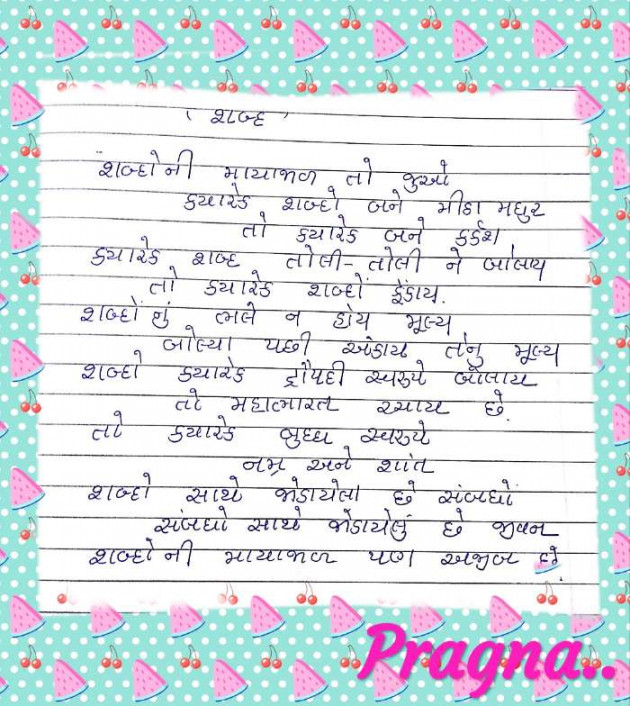 ' શબ્દ '
શબ્દોની માયાજાળ તો જુઓ
ક્યારેક શબ્દો બને મીઠા મધુર
તો ક્યારેક બને કર્કશ,
ક્યારેક શબ્દ તોલી-તોલી ને બોલાય
તો ક્યારેક શબ્દોં ફેંકાય.
શબ્દોંનું ભલે ન હોય મૂલ્ય
બોલ્યા પછી અંકાય તેનુ મૂલ્ય
શબ્દો ક્યારેક દ્રૌપદી સ્વરુપે બોલાય
તો મહાભારત રચાય છે.
તો ક્યારેક બુધ્ધ સ્વરુપે
નમ્ર અને શાંત
શબ્દો સાથે જોડાયેલા છે સંબધોં
સંબધો સાથે જોડાયેલું છે જીવન
શબ્દોની માયાજાળ પણ અજીબ છે.
Pragna..